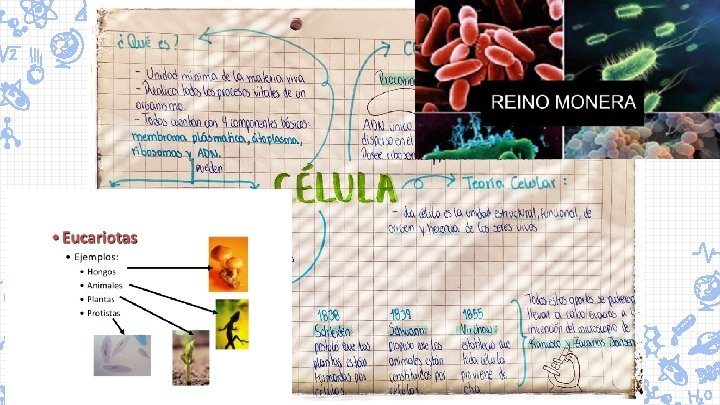 ¿Qué es?
- Unidad mínima de la materia viva
- Realiza todos los procesos vitales de un
organismo.
- Todas cuentan con 4 componentes básicos:
membrana plásmática, citoplasma,
ribosomas y ADN.
pueden
ADN único
disperso en el
REINO MONERA
CÉLULA
Teoría Celular:
- La célula es la unidad estructural, funcional, de
origen y herencia de los seres vivos
1838
Schleiden:
propuso que las
plantas están
formadas por
células.
1839
Schwann:
propuso que los
animales están
constituidos por
células.
1855
Virchow:
estableció que
toda célula
proviene de
otra
Todos estos aportes se pudieron
llevar a cabo gracias a la
invención del microscopio de
Zacarias Janssen
• Eucariotas
• Ejemplos:
• Hongos
• Animales
• Plantas
• Protistas
√2
H2O